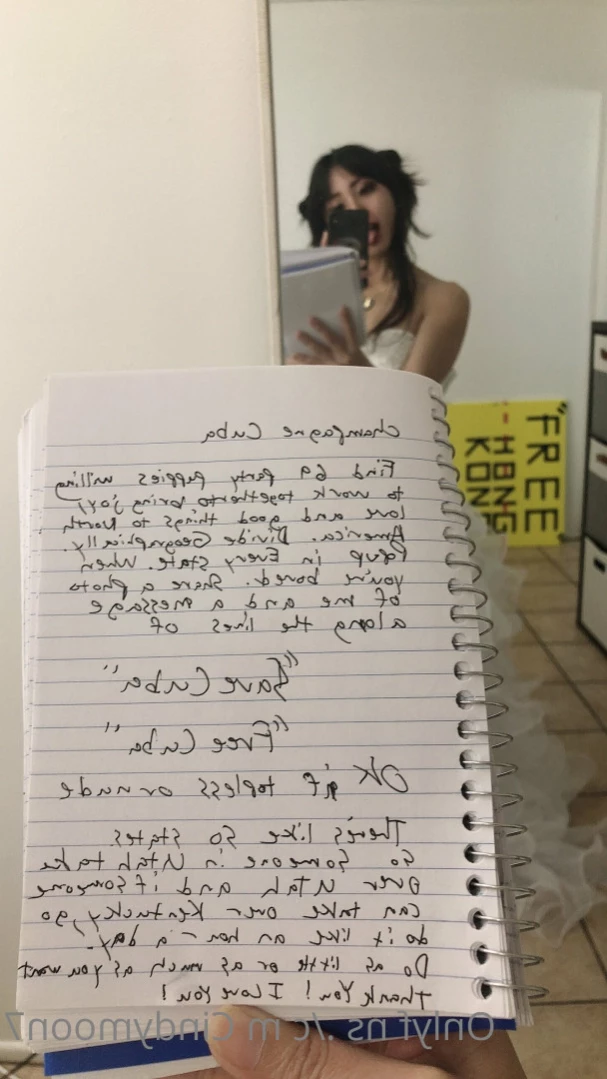 Champagne Cuba
Find 69 party puppies willing
to work together to bring joy/
love and good things to North
America. Divide Geographically.
Popup in Every State. When
you're bored. Share a photo
of me and a message
along the lines of
"Save Cuba"
"Free Cuba"
OK if topless or nude
There's like 50 states.
So someone in Utah take
over Utah and if someone
can take over Kentucky, go
do it like an hour a day!
Do as little or as much as you want
Thank You! I Love You!
"FREE
HONG
KONG
Onlyf ns ./c m Cindymoon7